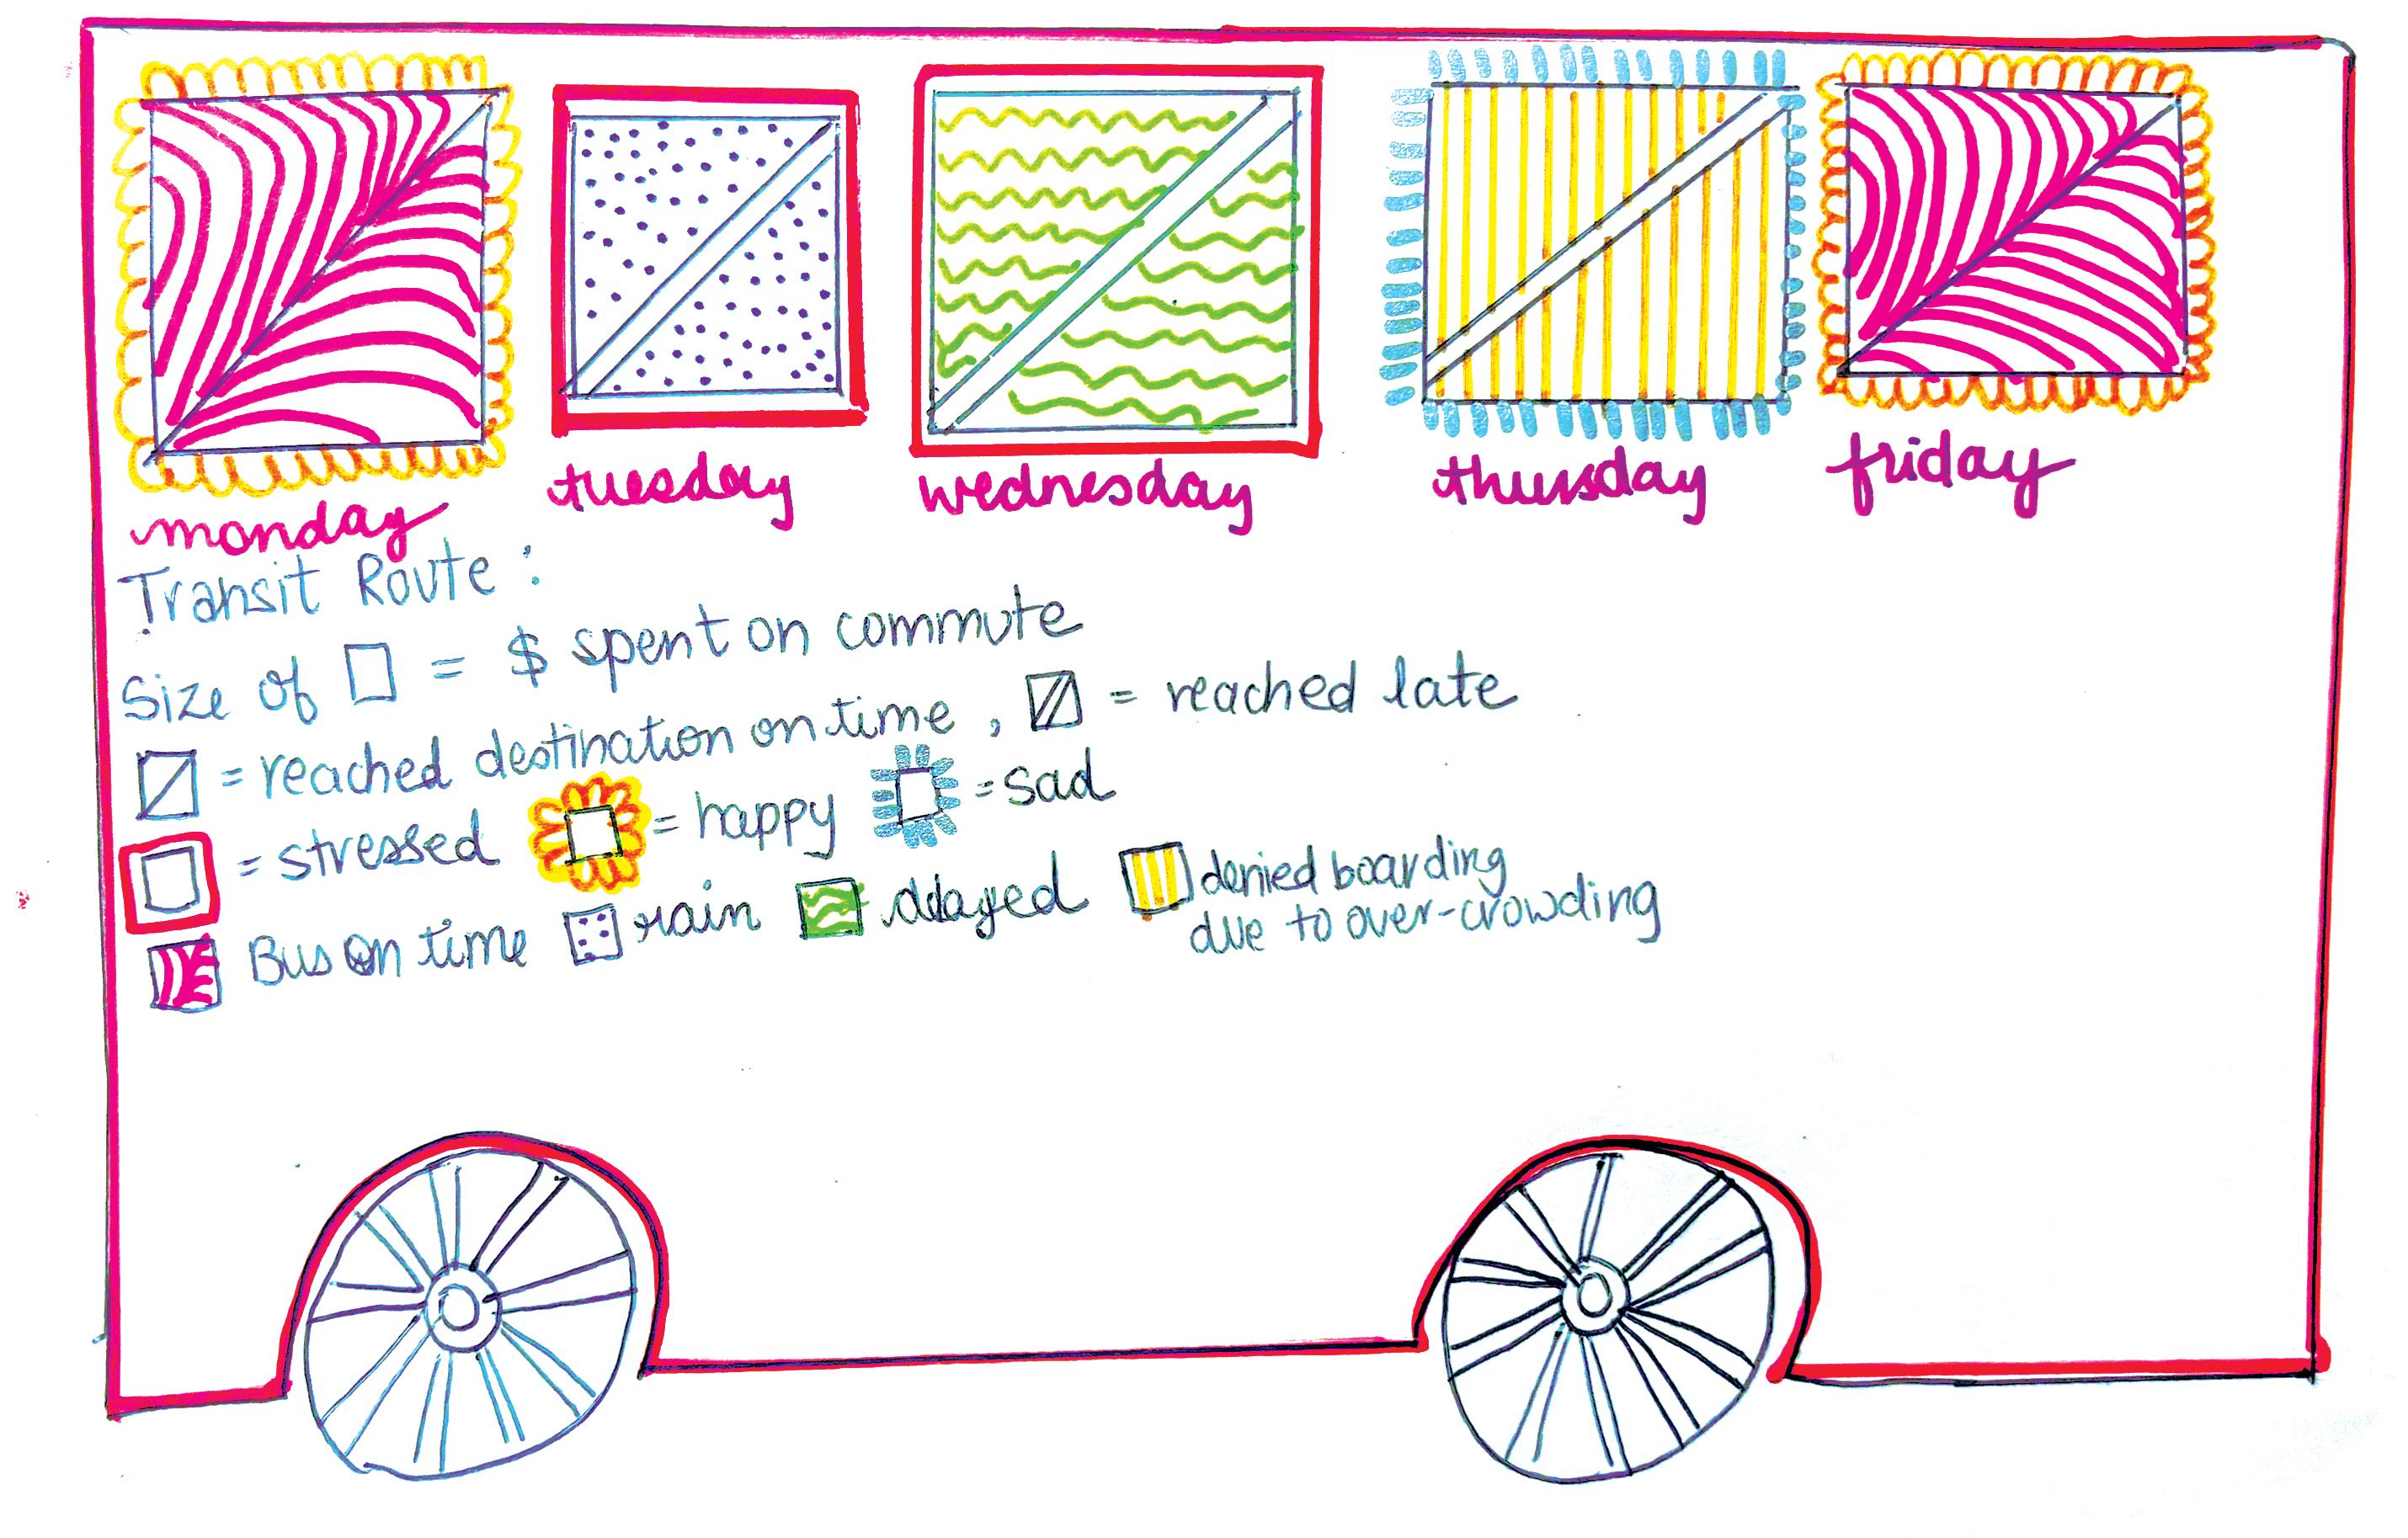 monday
tuesday
wednesday
thursday
friday
Transit Route :
Size of = $ spent on commute
= reached destination on time , = reached late
= stressed = happy = sad
Bus on time rain delayed denied boarding
due to over-crowding